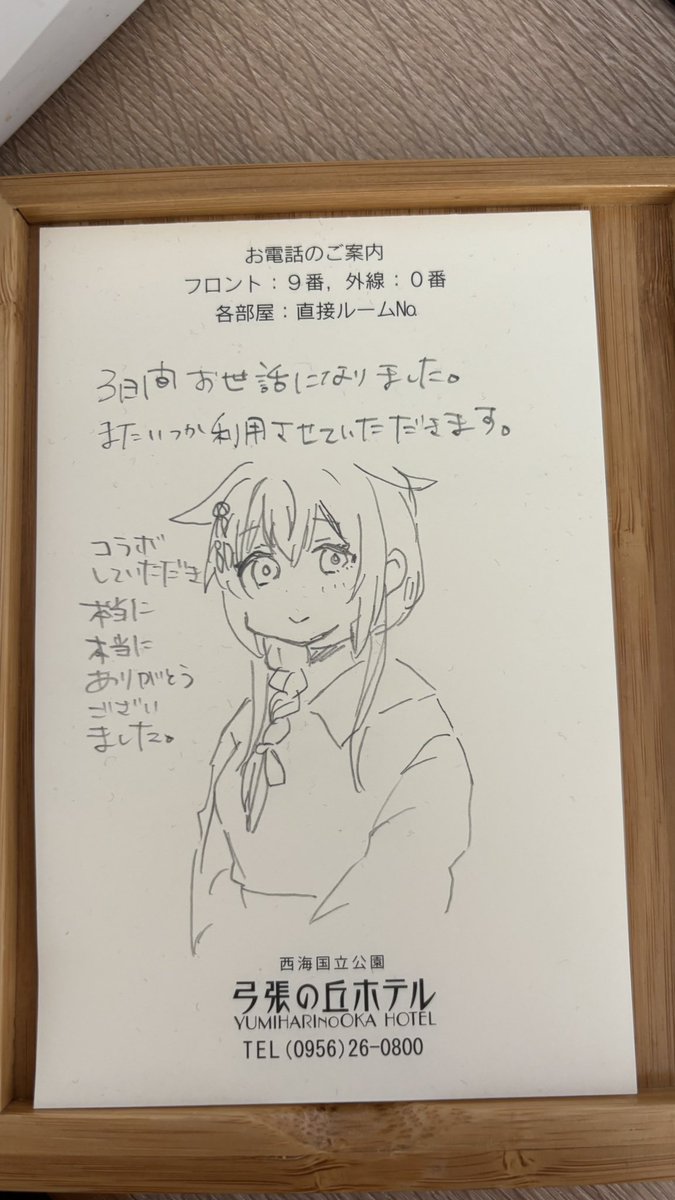 お電話のご案内
フロント：９番，外線：０番
各部屋：直接ルーム№
3日間お世話になりました。
またいつか利用させていただきます。
コラボ
していただき
本当に
本当に
ありがとう
ござい
ました。
西海国立公園
弓張の丘ホテル
YUMIHARINOOKA HOTEL
TEL(0956)26-0800